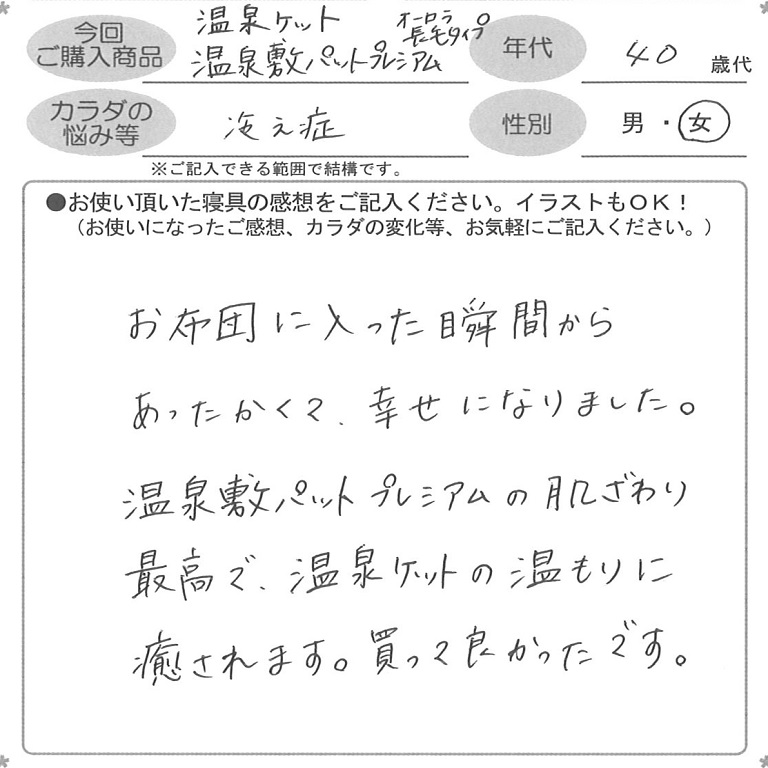 今回
ご購入商品
温泉ケット オーロラ
長毛タイプ
温泉敷パットプレミアム
年代
40 歳代
カラダの
悩み等
冷え症
性別
男・女
※ご記入できる範囲で結構です。
●お使い頂いた寝具の感想をご記入ください。イラストもOK！
（お使いになったご感想、カラダの変化等、お気軽にご記入ください。）
お布団に入った瞬間から
あったかくて、幸せになりました。
温泉敷パットプレミアムの肌ざわり
最高で、温泉ケットの温もりに
癒されます。買って良かったです。